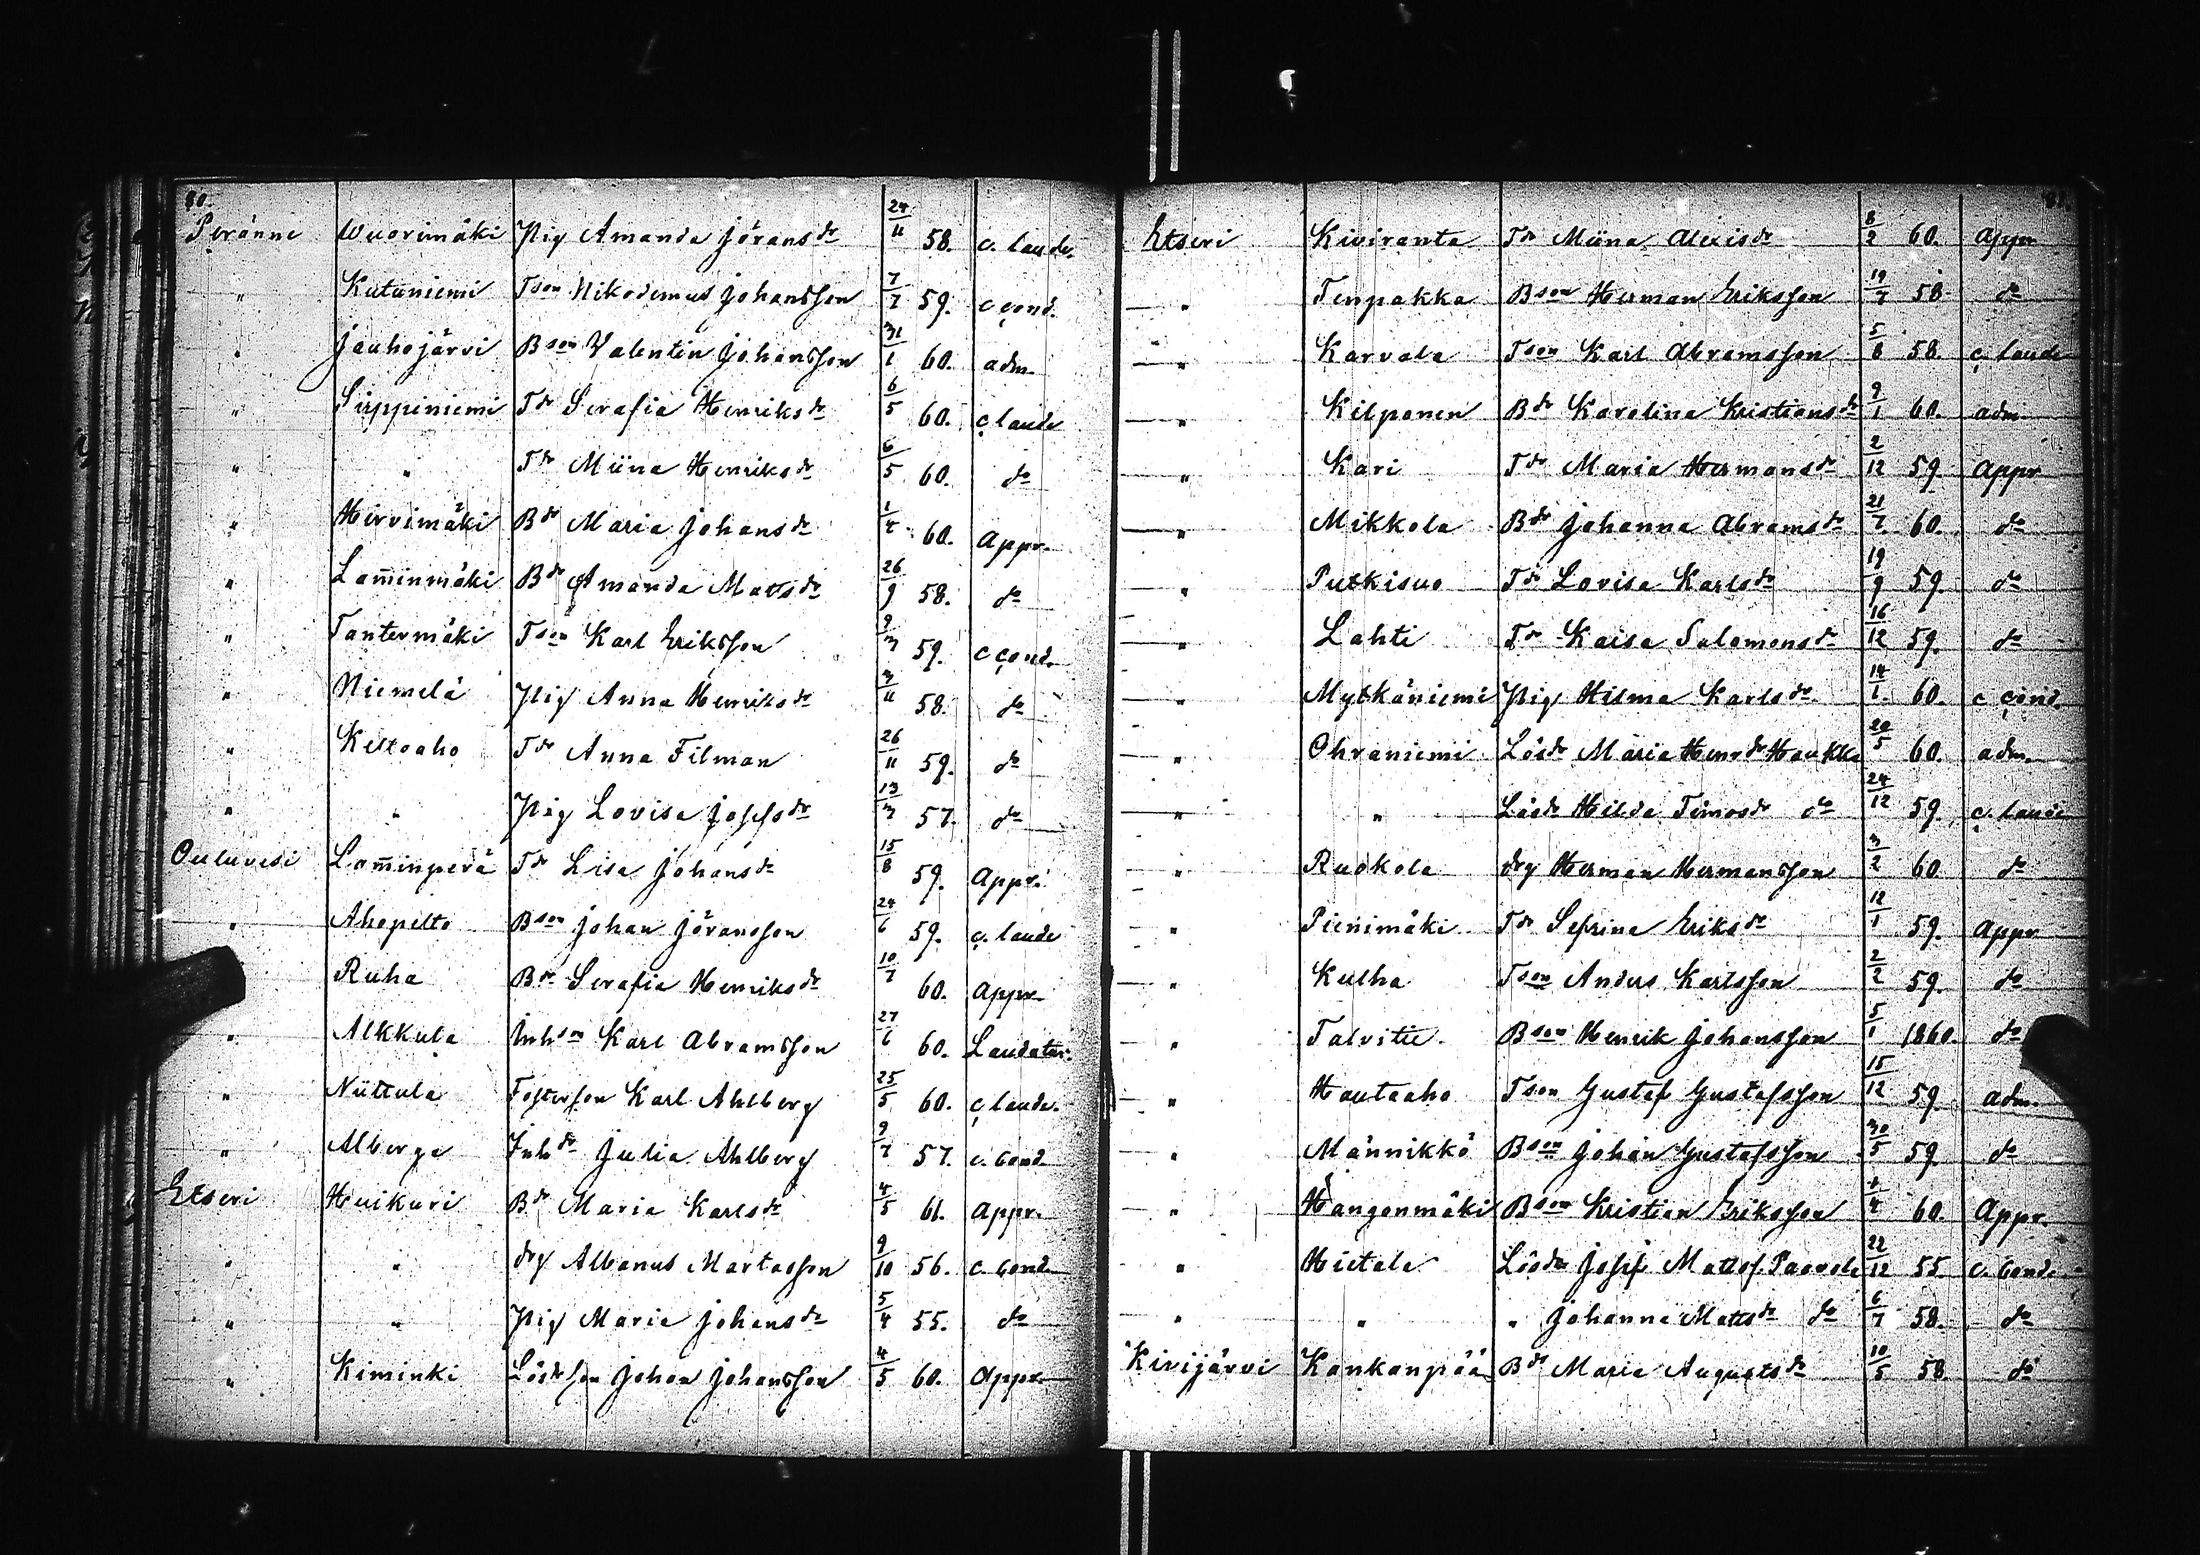 80.
Peränne Wuorimäki Pig Amanda Jöransdr 24/11 58. c. laude.
" Kutuniemi Tson Nikodemus Johansson 7/7 59. c cond.
" Jauhojärvi Bson Valentin Johansson 31/1 60. adm.
" Sirppiniemi Tdr Serafia Henriksdr 6/5 60. c laude
" " Tdr Miina Henriksdr 6/5 60. do
" Hirvimäki Bdr Maria Johansdr 1/4 60. Appr.
" Lam̄inmäki Bdr Amanda Matsdr 26/9 58. do
" Tantermäki Tson Karl Eriksson 9/3 59. c cond.
" Niemelä Pig Anna Henriksdr 3/11 58. do
" Keltoaho Tdr Anna Filman 26/11 59. do
" " Pig Lovisa Josefsdr 13/3 57. do
Ouluvesi Lam̄inperä Tdr Lisa Johansdr 15/8 59. Appr.
" Ahopelto Bson Johan Jöransson 24/6 59. c. laude
" Ruha Bdr Serafia Henriksdr 10/7 60. Appr.
" Alkkula Inhson Karl Abramsson 27/6 60. Laudatur.
" Niittula Fosterson Karl Ahlberg 25/5 60. c laude.
" Alberga Inhdr Julia Ahlberg 9/7 57. c. cond.
Etseri Huikuri Bdr Maria Karlsdr 4/5 61. Appr.
" " drg Albanus Martasson 9/10 56. c. cond.
" " Pig Maria Johansdr 5/4 55. do
" Kiminki Lösdrson Johan Johansson 4/5 60. Appr.
Etseri Kiviranta Tdr Miina Alexisdr 8/2 60. Appr
" Tenpakka Bson Herman Eriksson 19/7 58 do
" Karvala Tson Karl Abramsson 5/8 58. c. laude
" Kilponen Bdr Karolina Kristiansdr 9/1 60. adm.
" Kari Tdr Maria Hermansdr 2/12 59. Appr
" Mikkola Bdr Johanna Abramsdr 21/7 60. do
" Putkisuo Tdr Lovisa Karlsdr 19/9 59. do
" Lahti Tdr Kaisa Salomonsdr 16/12 59. do
" Mytkäniemi Pig Hilma Karlsdr 14/1 60. c cond.
" Ohraniemi Lösdr Maria Henrdr Haukka 20/5 60. adm.
" " Lösdr Hilda Timosdr do 24/12 59. c. laude
" Ruokola drg Herman Hermansson 3/2 60. do
" Pienimäki Tdr Sefrina Eriksdr 12/1 59. Appr
" Kulha Tson Anders Karlsson 2/2 59. do
" Talvitie Bson Henrik Johansson 5/1 1860. do
" Hautaaho Tson Gustaf Gustafsson 15/12 59. adm.
" Männikkö Bson Johan Gustafsson 30/5 59 do
" Hangonmäki Bson Kristian Eriksson 1/4 60. Appr.
" Hietala Lösdr Josef Mattsf. Paavola 22/12 55. c. cond.
" " " Johanna Matsdr do 6/7 58. do
Kivijärvi Kankanpää Bdr Maria Augustsdr 10/5 58. do